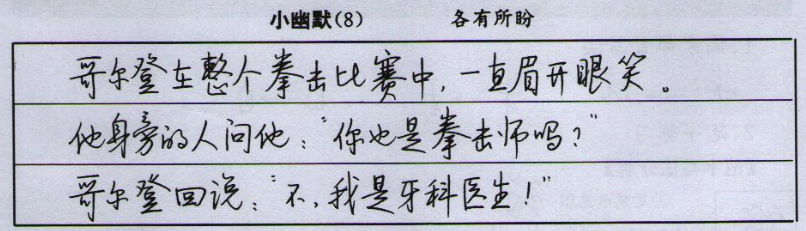 小幽默(8) 各有所盼
哥尔登在整个拳击比赛中，一直眉开眼笑。
他身旁的人问他："你也是拳击师吗？"
哥尔登回说："不，我是牙科医生！"